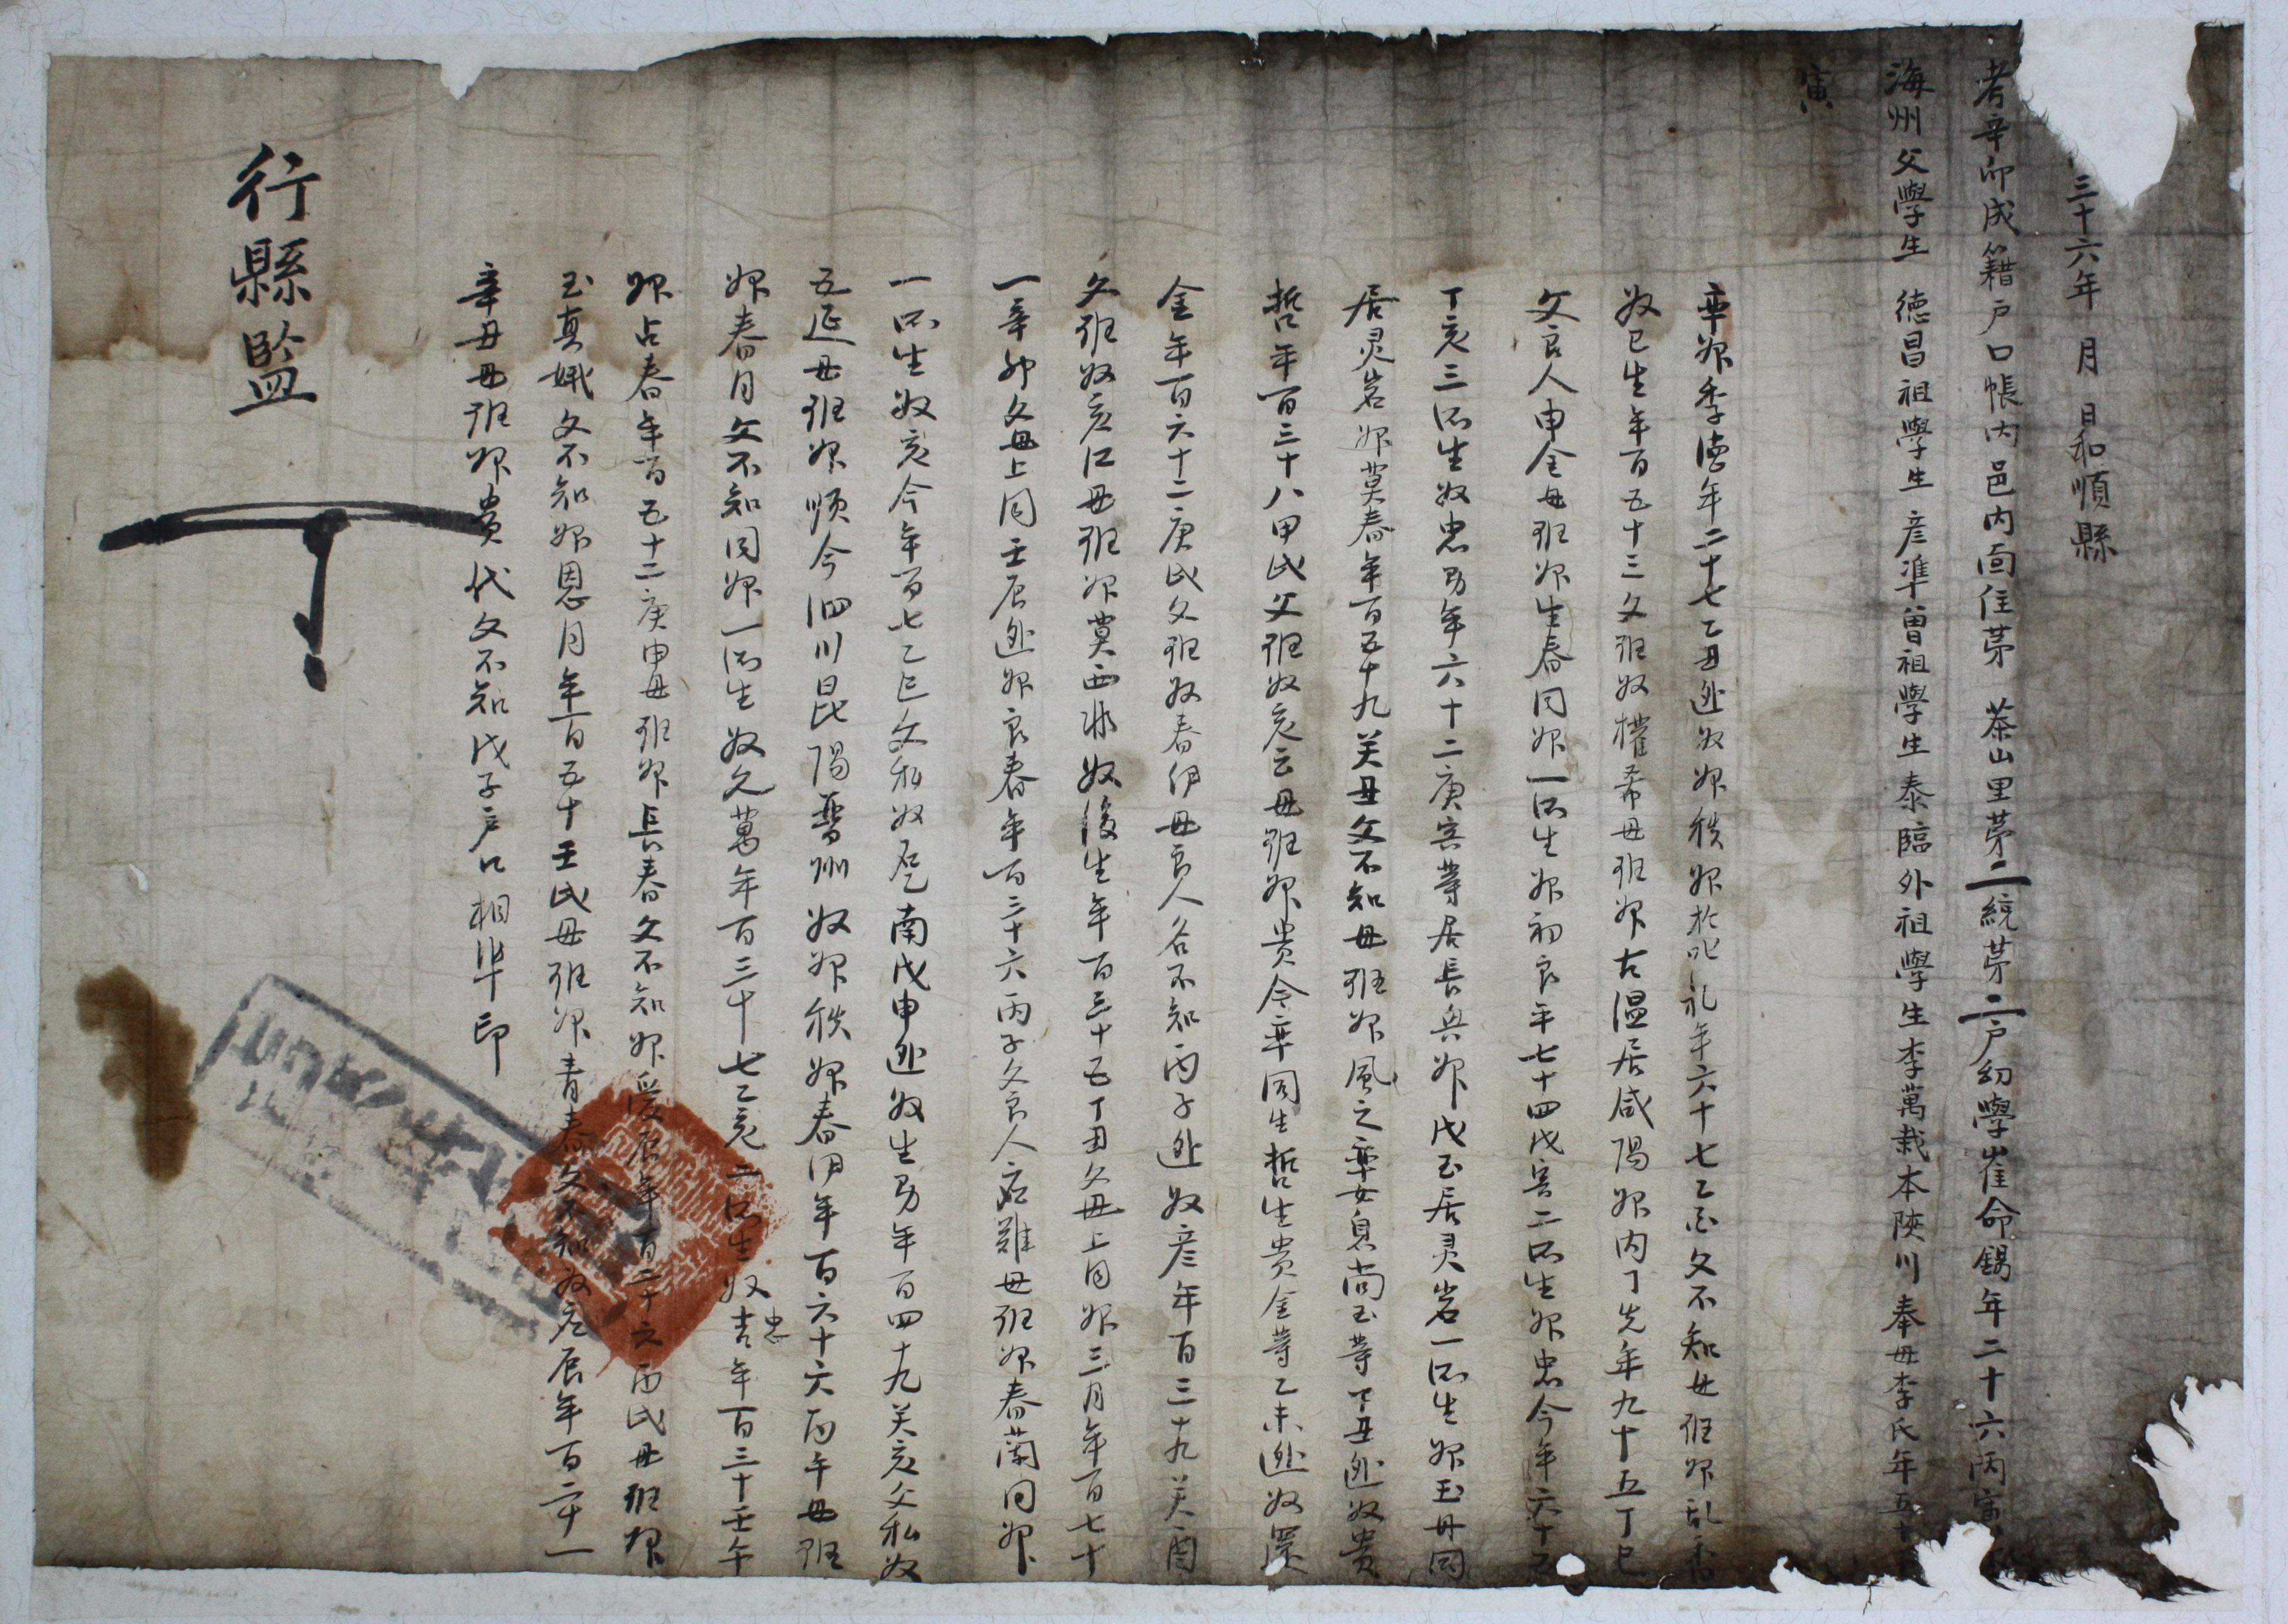 三十六年 月 日和順縣
考辛卯成籍户口帳內邑內面住苐 茶山里苐二統苐二户幼學崔命錫年二十六丙寅
海州父學生 德昌祖學生彦準曾祖學生泰臨外祖學生李萬栽本陜川奉母李氏年五十
寅
率婢季德年二十七乙丑逃奴婢秩婢於叱礼年六十七乙酉父不知母班婢乱香
奴已生年百五十三父班奴權希母班婢古温居咸陽婢內丁先年九十五丁巳
父良人申金母班婢生春同婢一所生婢初良年七十四戊寅二所生婢忠今年六十五
丁亥三所生奴忠男年六十二庚寅等居長興婢戊玉居灵岩一所生婢玉丹同
居灵岩婢莫春年百五十九癸丑父不知母班婢風之率女息尚玉等丁丑逃奴貴
哲年百三十八甲戌父班奴亥云母班婢貴今率同生哲生貴金等乙未逃奴
金年百六十二庚戌父班奴春伊母良人名不知丙子逃奴彦年百三十九癸酉
父班奴亥江母班婢莫西非奴後生年百三十五丁丑父母上同婢三月年百七十
一辛卯父母上同壬辰逃婢良春年百三十六丙子父良人 難母班婢春蘭同婢
一所生奴亥今年百七乙巳父私奴 南戊申逃奴生男年百四十九癸亥父私奴
五延母班婢順今泗川昆陽晋州奴婢秩婢春伊年百六十六丙午母班
婢春月父不知同婢一所生奴久萬年百三十七乙亥二所生奴吉忠年百三十壬午
婢占春年百五十二庚申母班婢長春父不知婢 年百 丙戌母班婢
玉真娥父不知婢恩月年百五十壬戌母班婢青春父不知奴 辰年百 一
辛丑母班婢貴代父不知戊子户口相準印
行縣監